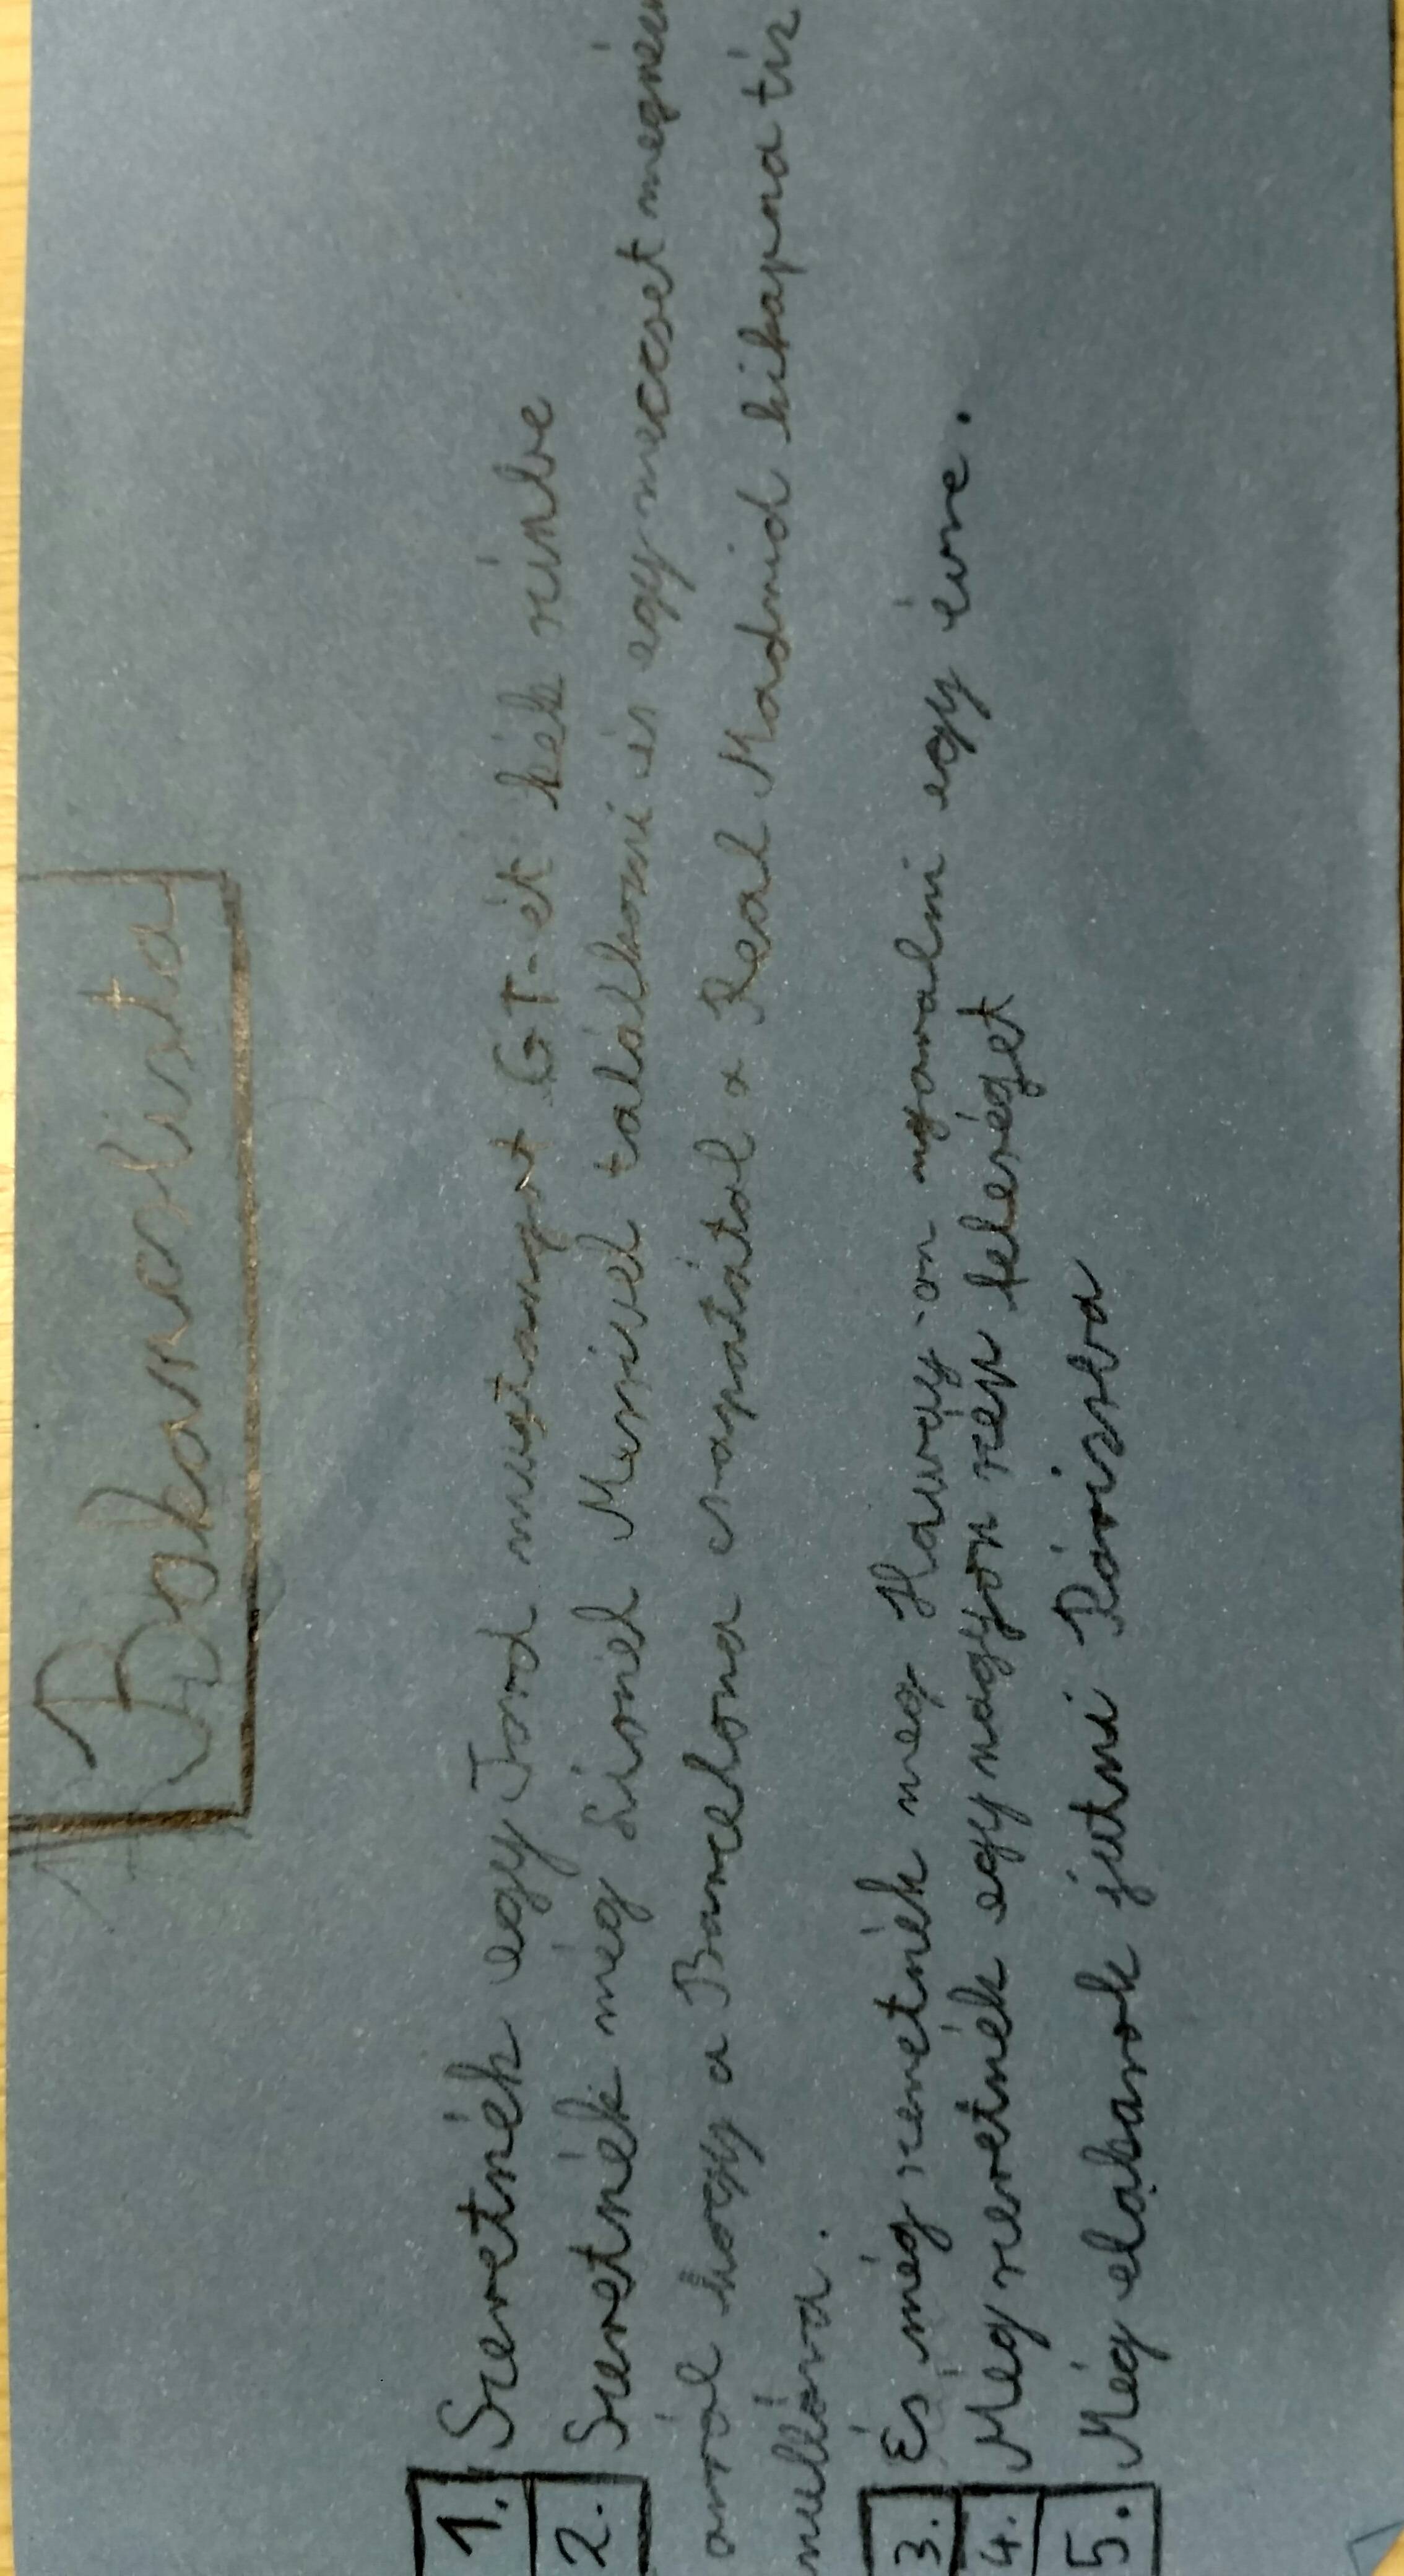 Bakancslista
1. Szeretnék egy Ford mustangot GT-ét kék színbe
2. Szeretnék még Lionel Messivel találkozni és egy meccset megnézni
arról hogy a Barcelona csapatától a Real Madrid kikapna tíz
nullára.
3. És még szeretnék meg Haway-on nyaralni egy évre.
4. Meg szeretnék egy nagyon szép feleséget
5. Még elakarok jutni Párizsba